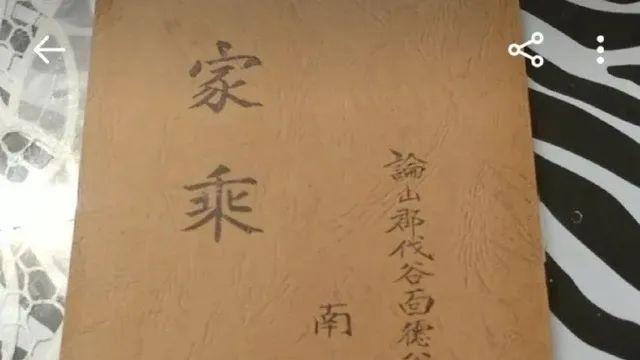 論山郡伐谷面德
南
家乘